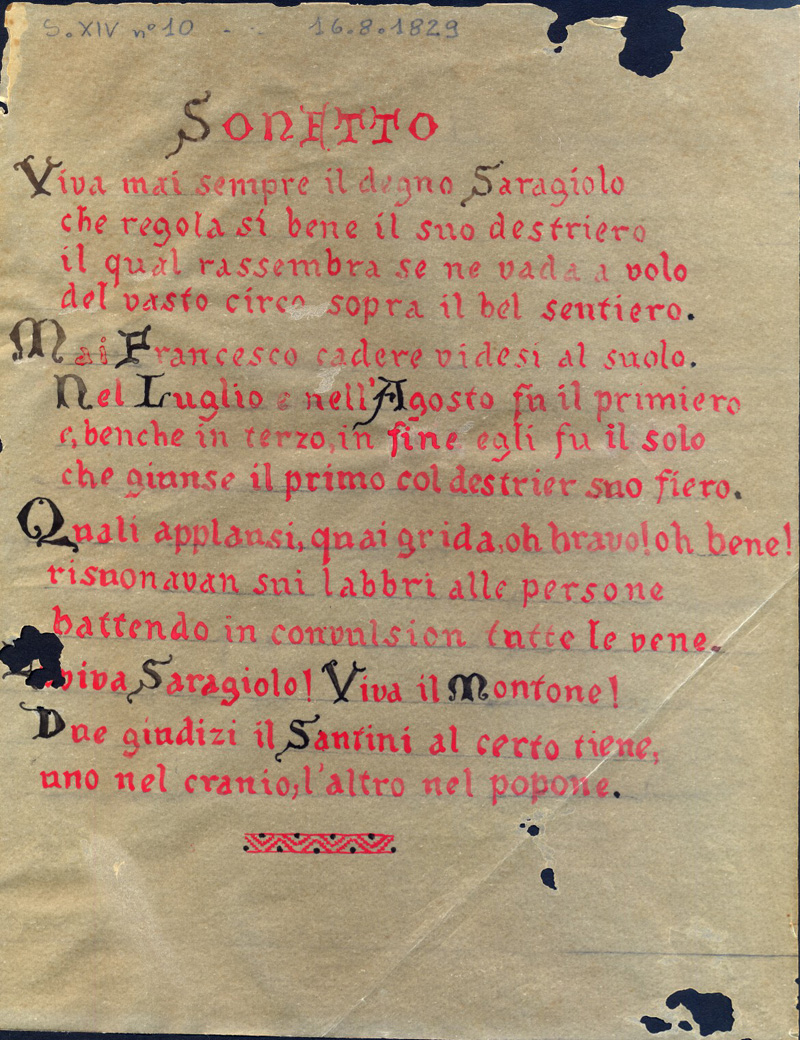 S.XIV n° 10 - - 16.8.1829
SONETTO
Viva mai sempre il degno Saragiolo
che regola sí bene il suo destriero
il qual rassembra se ne vada a volo
del vasto circo sopra il bel sentiero.
Mai Francesco cadere videsi al suolo.
Nel Luglio e nell'Agosto fu il primiero
e, benche in terzo, in fine egli fu il solo
che giunse il primo col destrier suo fiero.
Quali applausi, quai grida, oh bravo! oh bene!
risuonavan sui labbri alle persone
battendo in convulsion tutte le vene.
Saragiolo! Viva il Montone!
Due giudizi il Santini al certo tiene,
uno nel cranio, l'altro nel popone.